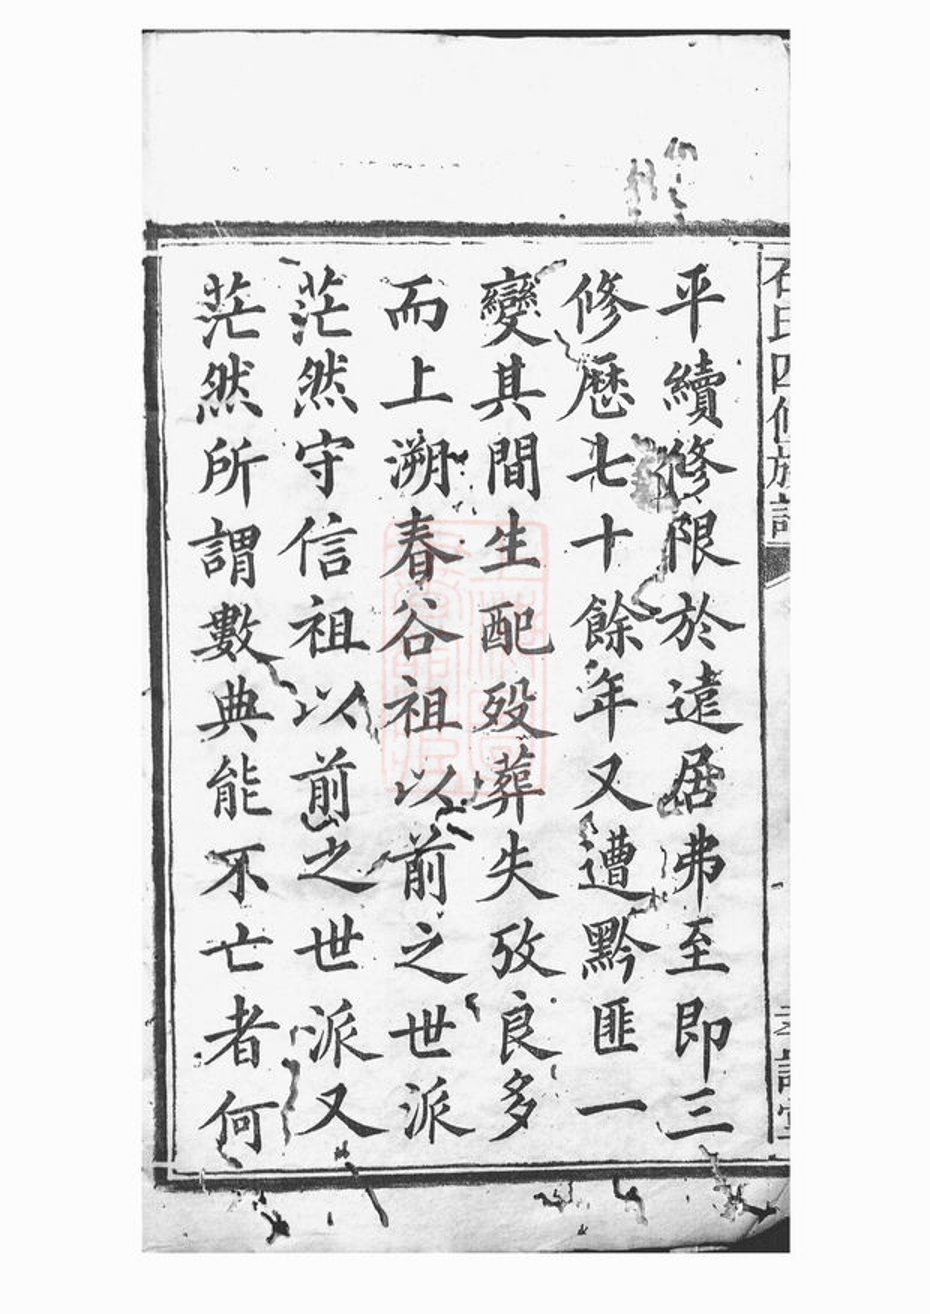 石氏四修族譜
平續修限於遠居弗至即三
修歷七十餘年又遭黔匪一
變其間生配殁葬失攷良多
而上溯春谷祖以前之世派
茫然守信祖以前之世派又
茫然所謂數典能不亡者何